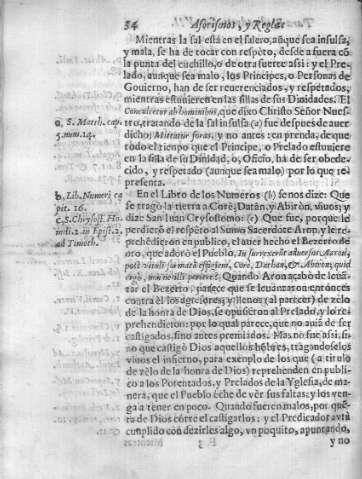 34 Aforismos, y Reglas
Mientras la sal està en el salero, aũque sea insulsa,
y mala, se ha de tocar con respèto, desde a fuera cõ
la punta del cuchillo, o de otra suerte assi: y el Pre-
lado, aunque sea malo, los Principes, o Personas de
Gouierno, han de ser reuerenciados, y respètados,
mientras estuuieren en las sillas de sus Dinidades. El
Conculcetur ab hominibus, que dixo Christo Señor Nues-
a. S. Matth. cap.
tro, tratando de la sal insulsa (a) fue despuès de auer
5. num. 14.
dicho: Mittatur foras, y no antes: en prenda, de que
todo el tiempo que el Principe, o Prelado estuuiere
en la silla de su Dinidad, o, Oficio, hà de ser obede-
cido, y respetado (aunque sea malo) por lo que re-
presenta.
b. Lib. Numeri ca
En el Libro de los Numeros (b) se nos dize: Que
pit. 16.
se tragò la tierra a Corè, Datàn, y Abiròn, viuos; y
c. S. Chrysost. Ho
dize San Iuan Crysostomo: (c) Que fue, porque le
mili. 2. in Epist. 2.
perdierõ el respèto al Sumo Sacerdote Aròn, y le re-
ad Timoth.
prehẽdieron en publico, el auer hecho el Bezerro de
oro, que adorò el Pueblo, In surrexerũt aduersus Aaron,
post vituli formatã effigiem, Core, Dathan, & Abiron; quid
ergo, nonne illi periere? Quando Aron acabò de leuã-
tar el Bezerro, parece que se leuantaron entonces
contra èl los agresores; y llenos (al parecer) de zèlo
de la honra de Dios, se opusieron al Prelado, y lo re-
prehendieron: por lo qual parece, que no auia de ser
castigados, sino antes premiados. Mas no fue assi, si-
no que castigò Dios aquellos hõbres, tragandoselos
viuos el infierno, para exemplo de los que (a titulo
de zèlo de la honra de Dios) reprehenden en publi-
co a los Potentados, y Prelados de la Yglesia, de ma-
nera, que el Pueblo èche de ver sus faltas; y los ven-
ga a tener en poco. Quando fueren malos, por quẽ-
ta de Dios còrre el castigarlos: y el Predicador avrà
cumplido con dezirles algo, vn poquito, apuntando,
y no